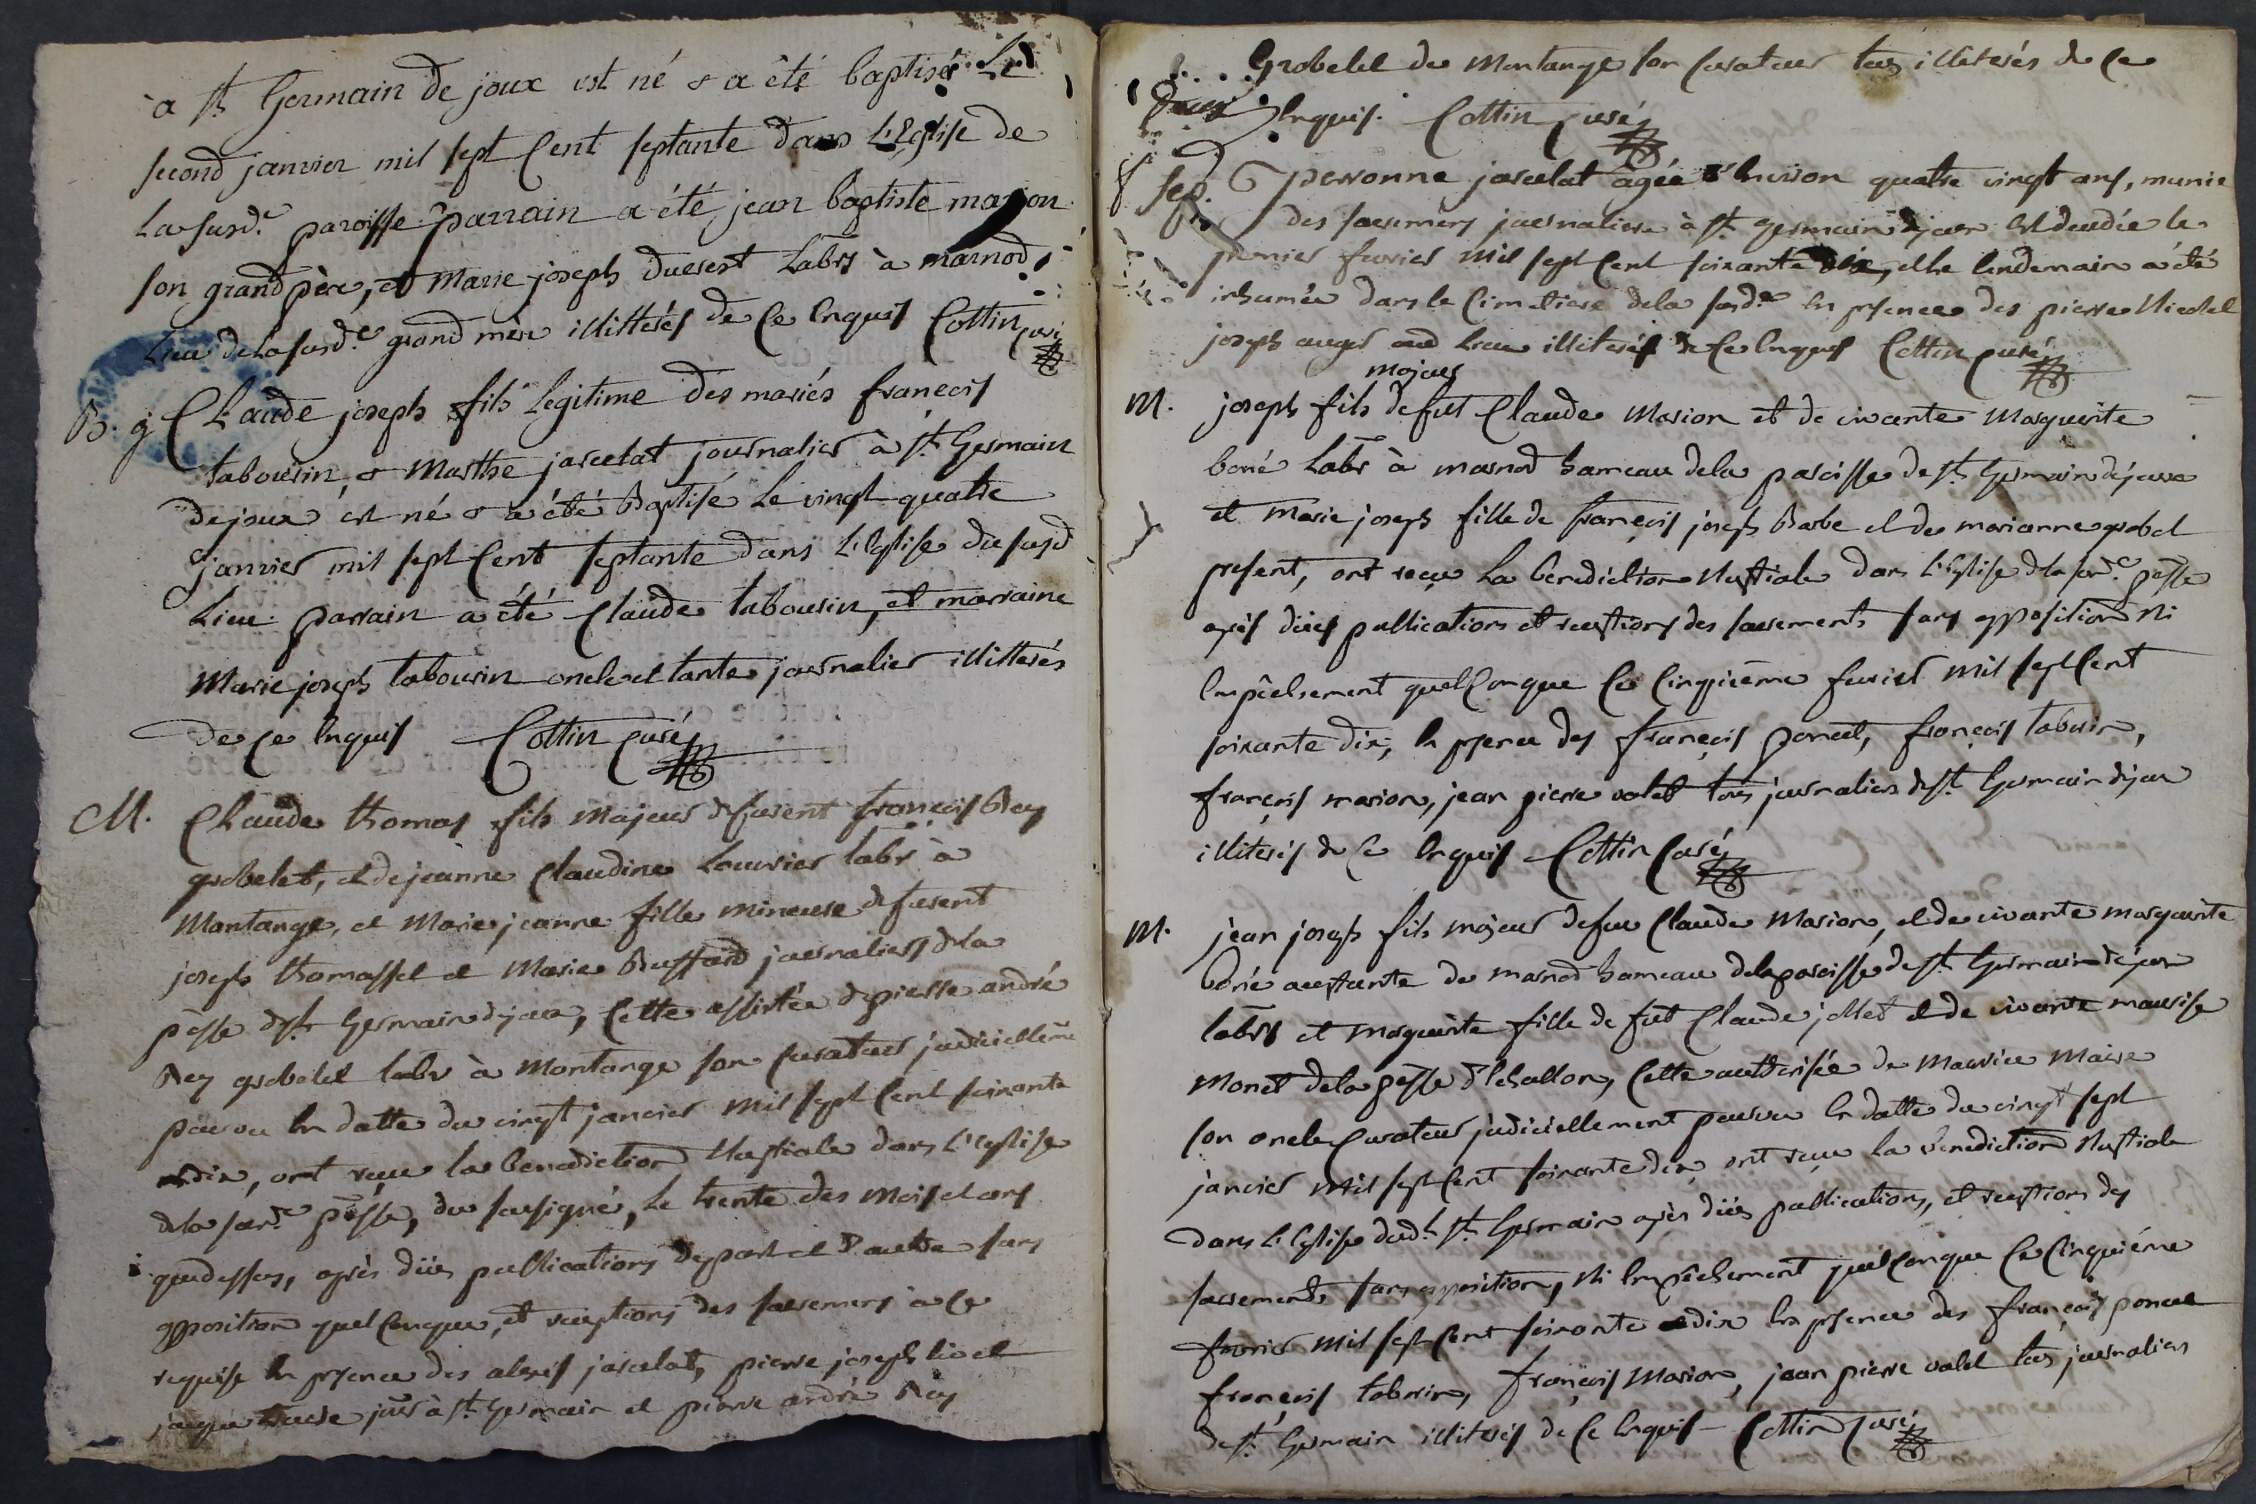 à St. Germain de joux est né & a été baptisé Le
second janvier mil sept Cent septante dans L'Eglise de
La susd.e paroisse parrain a été jean baptiste marion
son grand père, et Marie joseph ducrest Labrs à marnod
Lieu de La susd.e grand mère illitterés de Ce Enquis Cottin curé
B. g Claude joseph fils Legitime des mariés françois
tabourin, & Marthe jarcelat journalier à St. Germain
de joux est né & a été Baptisé Le vingt quatre
janvier mil sept Cent septante dans L'Eglise du susd
Lieu parrain a été Claude tabourin, et marraine
Marie joseph tabourin oncle et tante journalier illitterés
de Ce Enquis Cottin Curé
M. Claude thomas fils majeur defurent françois Rey
grobelet, et de jeanne Claudine Louvrier labr à
Montange, et Marie jeanne fille mineure defurent
joseph thomasset et Marie Bustard journaliers de la
pësse de St. Germain de joux, Cette assistée de pierre andré
Rey grobelet labr à Montange son Curateur judiciellem̃
pourvu En datte du vingt janvier mil sept Cent soixante
dix, ont reçu la benediction Nuptiale dans L'Eglise
de la sus.de pësse, du soussigné, Le trente des Mois et ans
que dessus, après dües publications de part et d'autre sans
opposition quelConque, et receptions des sacremens a Ce
requise En psence des alexis jarcelat, pierre joseph
jour à St. Germain et pierre andré Rey
Grobelet de Montange son Curateur tous illiterés de Ce
Enquis. Cottin Curé
Sep. perronne jarcelat agée d'Environ quatre vingt ans, munie
des sacremens journaliere à St. Germain de joux Est decedée le
premier fevrier mil sept Cent soixante dix, et Le lendemain a été
inhumée dans le Cimetiere de la susd.e En psence des pierre
joseph aud Lieu illiterés de Ce Enquis Cottin Curé
majeur
M. joseph fils defut Claude Marion et de vivante Marguerite
boné Labr à marnod hameau de la paroisse de St. Germain de joux
et Marie joseph fille de françois joseph Barbe et de marianne grobel
present, ont reçu La benediction Nuptiale dans L'Eglise de la sus.de pësse
après dües publications et receptions des sacrements sans opposition Ni
Empêchement quelConque Ce Cinquième fevrier mil sept Cent
soixante dix, En psence des françois poncet, françois tabourin,
françois marion, jean pierre valet tous journaliers de St. Germain de joux
illiterés de Ce Enquis Cottin Curé
M. jean joseph fils majeur defeu Claude Marion, et de vivante marguerite
boné de marnod hameau de la paroisse de St. Germain de joux
labrs et Marguerite fille de fut Claude jollet et de vivante maurise
Monet de la pësse d'Echallon, Cette authorisée de Maurice Maire
son oncle Curateur judiciellement pourvu En datte du vingt sept
janvier mil sept Cent soixante dix, ont reçu La benediction Nuptiale
dans L'Eglise dud.t St. Germain après dües publications, et receptions des
sacrements sans opposition, Ni Empêchement quelConque Ce Cinquiéme
fevrier mil sept Cent soixante dix En psence des françois poncet
françois tabourin, françois Marion, jean pierre valet tous journaliers
de St. Germain illiterés de Ce Enquis – Cottin Curé